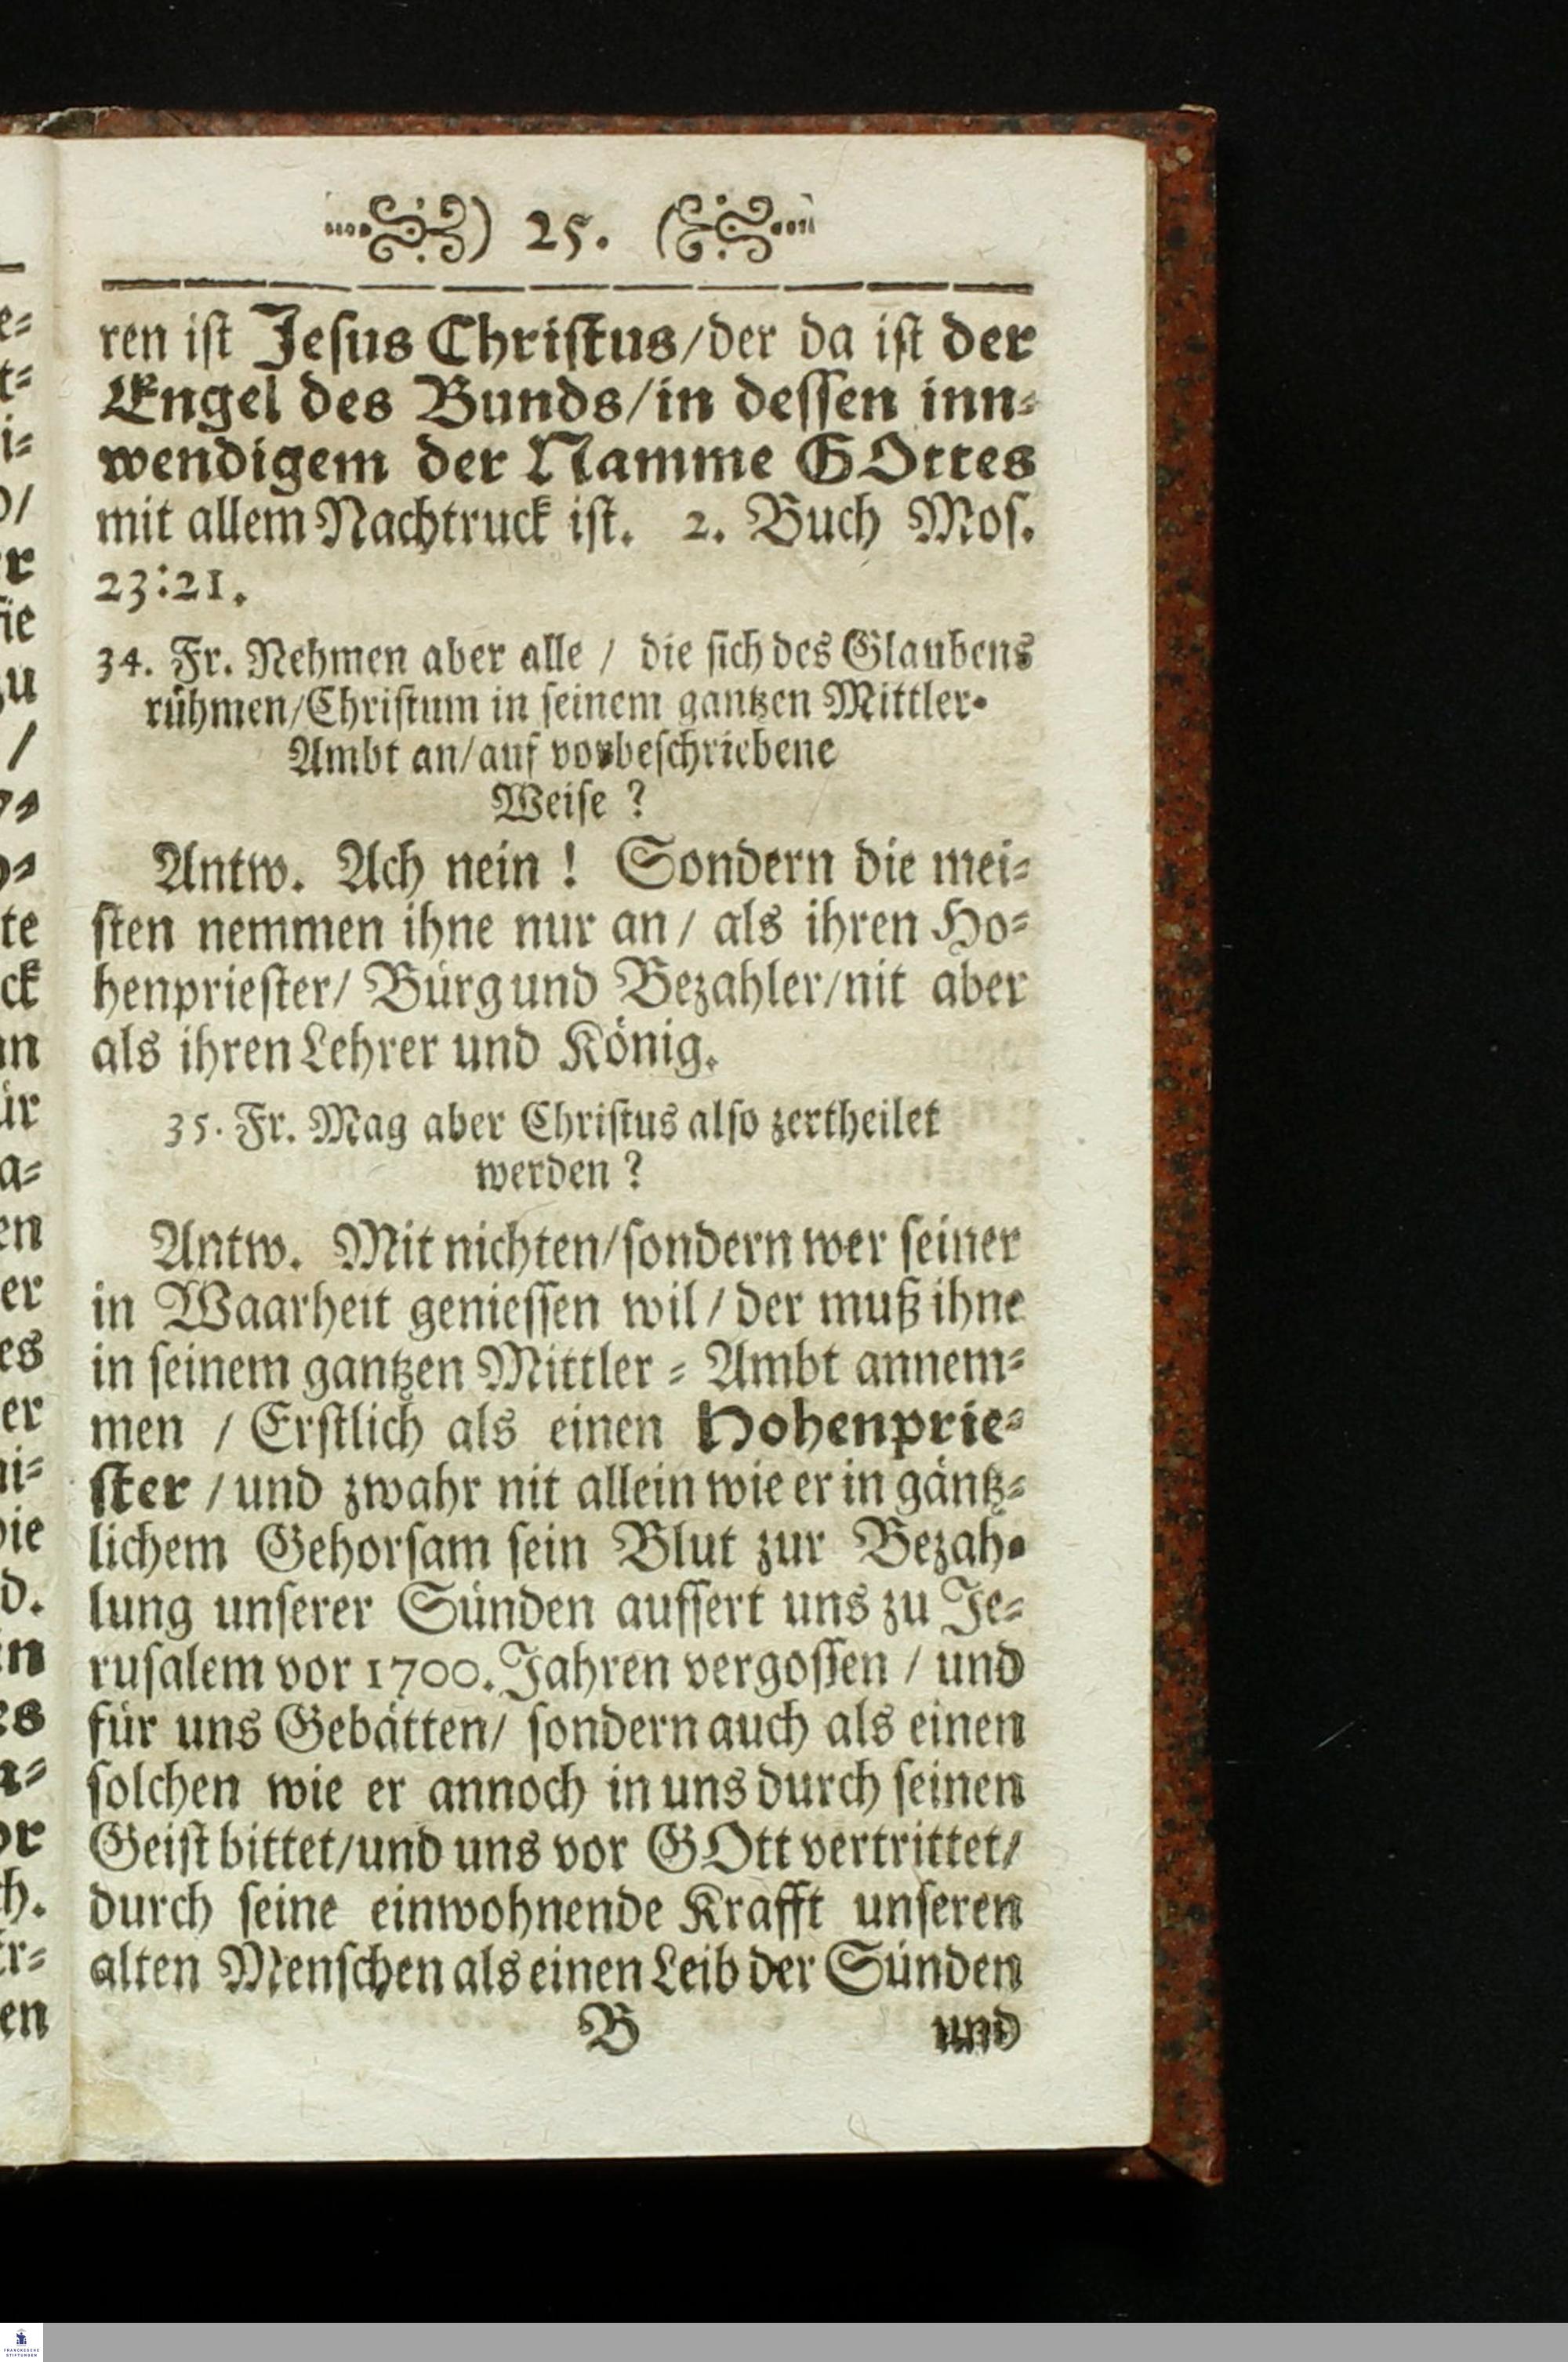 ) 25. (
ren ist Jesus Christus/der da ist der
Engel des Bunds/in dessen inn-
wendigem der Namme GOttes
mit allem Nachtruck ist. 2. Buch Mos.
23:21.
34. Fr. Nehmen aber alle / die sich des Glaubens
rühmen/Christum in seinem gantzen Mittler-
Ambt an/auf vorbeschriebene
Weise ?
Antw. Ach nein ! Sondern die mei-
sten nemmen ihne nur an / als ihren Ho-
henpriester/ Bürg und Bezahler/nit aber
als ihren Lehrer und König.
35. Fr. Mag aber Christus also zertheilet
werden ?
Antw. Mit nichten/sondern wer seiner
in Waarheit geniessen wil / der muß ihne
in seinem gantzen Mittler-Ambt annem-
men / Erstlich als einen Hohenprie-
ster / und zwahr nit allein wie er in gäntz-
lichem Gehorsam sein Blut zur Bezah-
lung unserer Sünden aussert uns zu Je-
rusalem vor 1700. Jahren vergossen / und
für uns Gebätten/ sondern auch als einen
solchen wie er annoch in uns durch seinen
Geist bittet/und uns vor GOtt vertrittet/
durch seine einwohnende Krafft unseren
alten Menschen als einen Leib der Sünden
B und
FRANCKESCHE
STIFTUNGEN